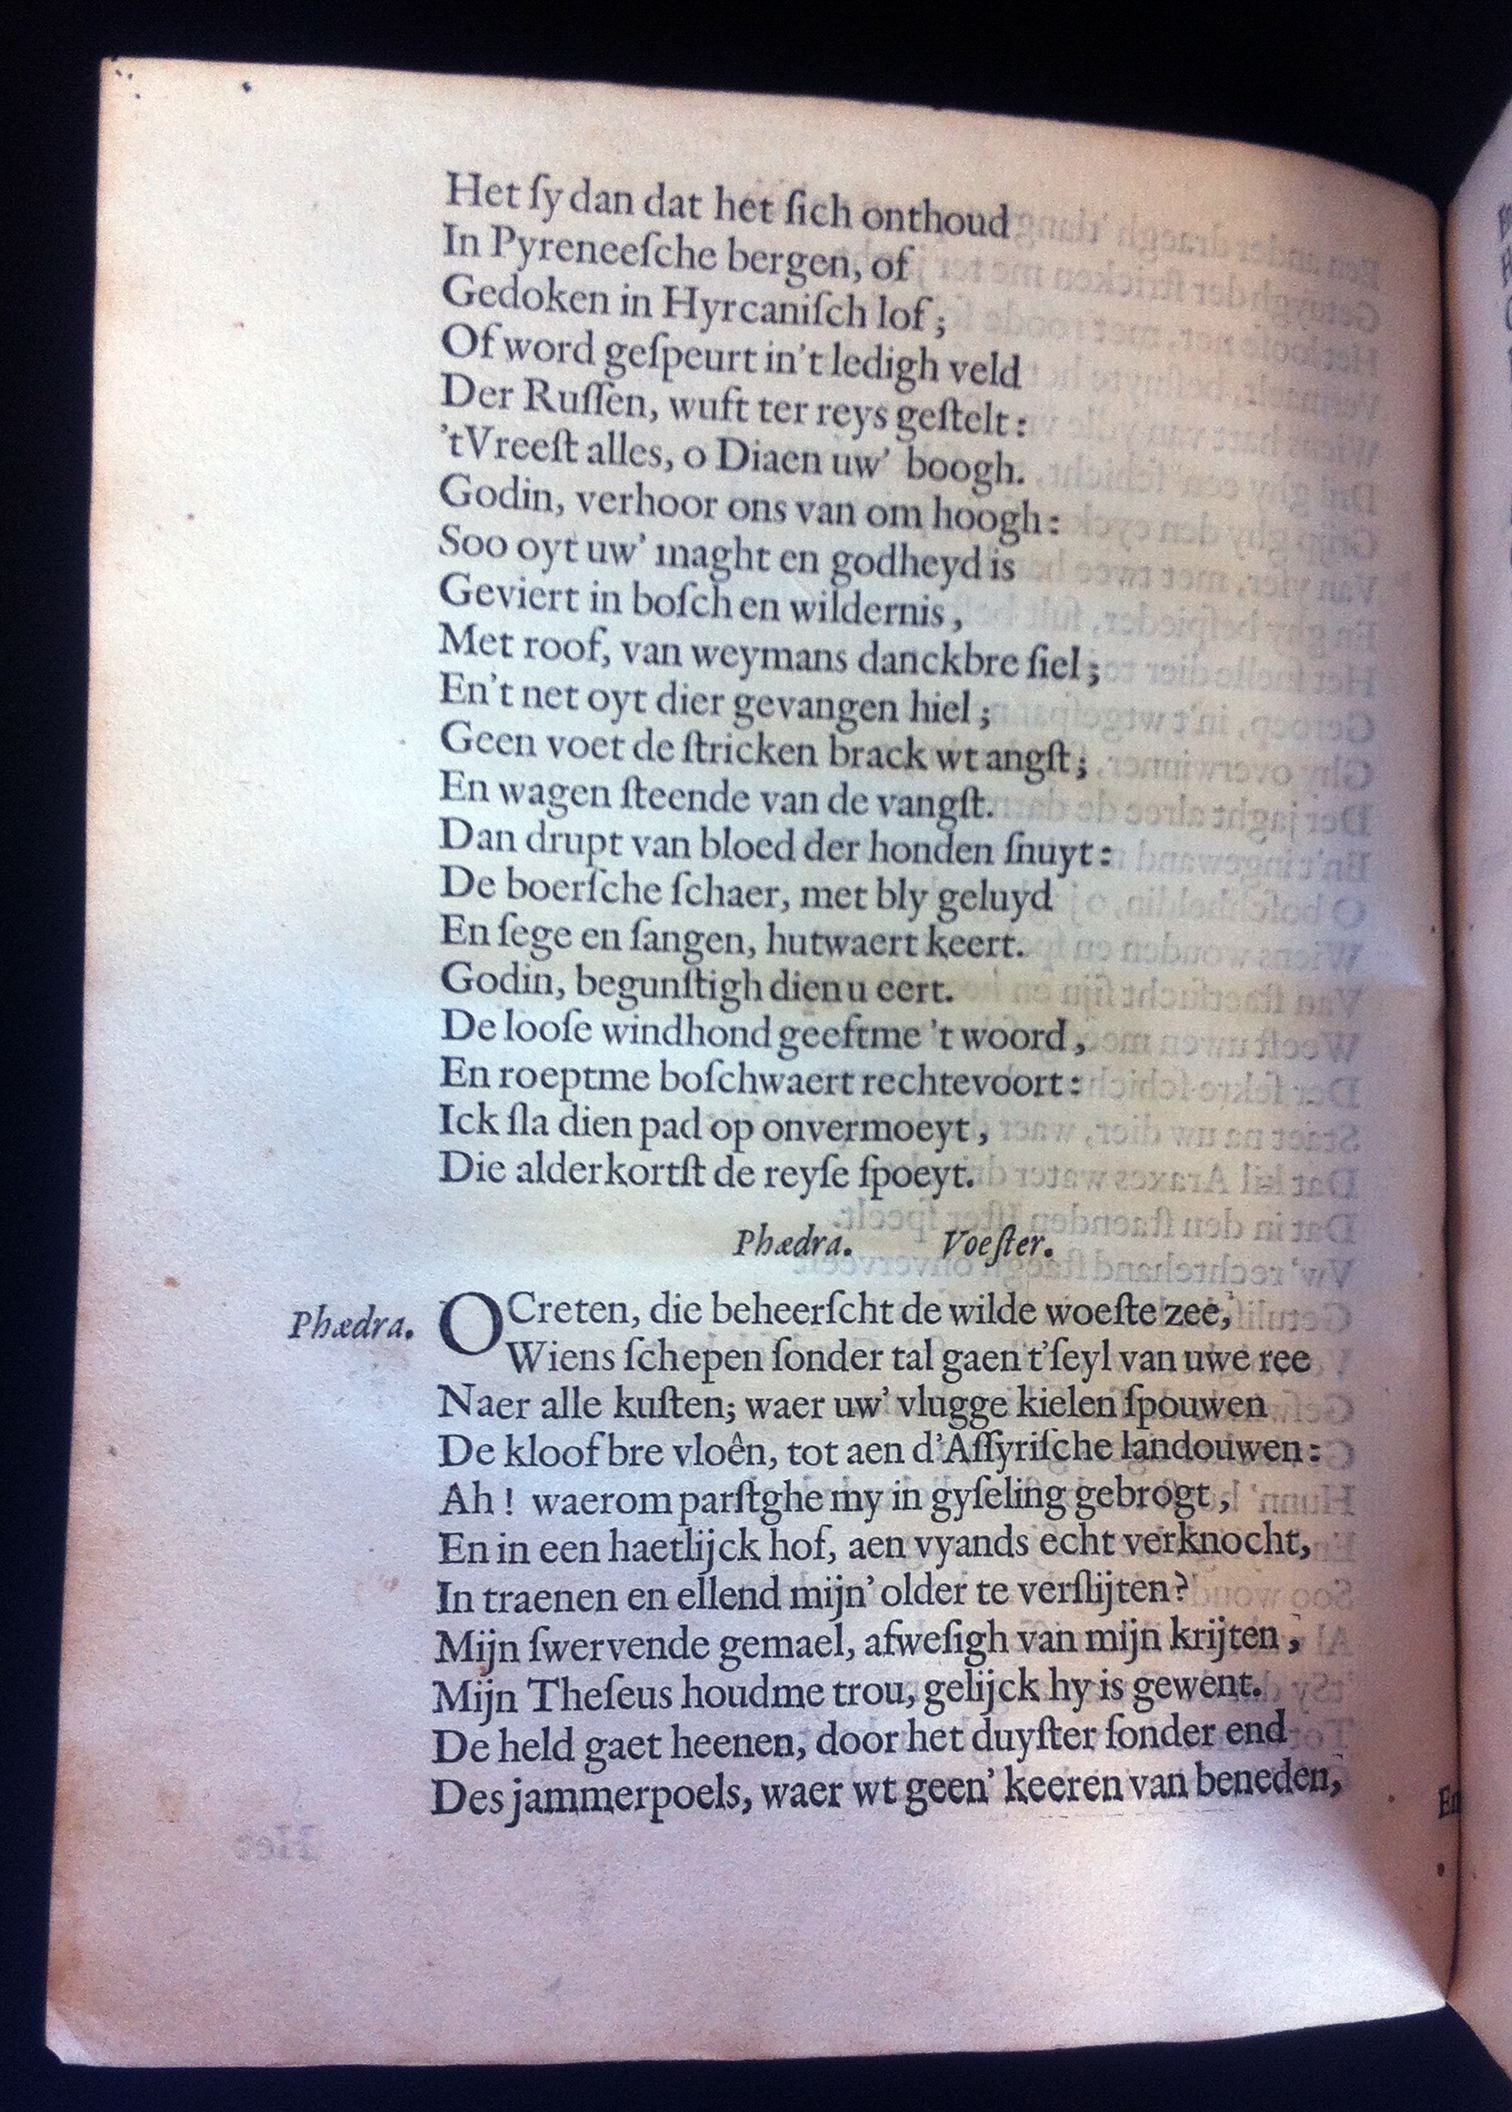 Het ſy dan dat het ſich onthoud
In Pyreneeſche bergen, of
Gedoken in Hyrcaniſch lof;
Of word geſpeurt in't ledigh veld
Der Ruſſen, wuft ter reys geſtelt:
'tVreeſt alles, o Diaen uw' boogh.
Godin, verhoor ons van om hoogh:
Soo oyt uw' maght en godheyd is
Geviert in boſch en wildernis,
Met roof, van weymans danckbre ſiel;
En't net oyt dier gevangen hiel;
Geen voet de ſtricken brack wt angſt;
En wagen ſteende van de vangſt.
Dan drupt van bloed der honden ſnuyt:
De boerſche ſchaer, met bly geluyd
En ſege en ſangen, hutwaert keert.
Godin, begunſtigh dien u eert.
De looſe windhond geeftme 't woord,
En roeptme boſchwaert rechtevoort:
Ick ſla dien pad op onvermoeyt,
Die alderkortſt de reyſe ſpoeyt.
Phædra. Voeſter.
Phædra. O Creten, die beheerſcht de wilde woeſte zee,
Wiens ſchepen ſonder tal gaen t'ſeyl van uwe ree
Naer alle kuſten; waer uw' vlugge kielen ſpouwen
De kloofbre vloên, tot aen d'Aſſyriſche landouwen:
Ah! waerom parſtghe my in gyſeling gebrogt,
En in een haetlijck hof, aen vyands echt verknocht,
In traenen en ellend mijn' older te verſlijten?
Mijn ſwervende gemael, afweſigh van mijn krijten,
Mijn Theſeus houdme trou, gelijck hy is gewent.
De held gaet heenen, door het duyſter ſonder end
Des jammerpoels, waer wt geen' keeren van beneden,
En